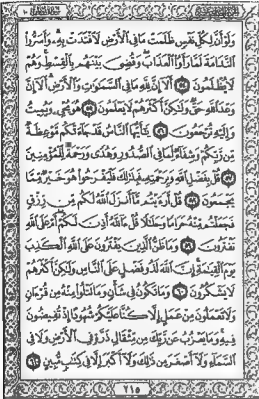 وَلَوْ أَنَّ لِكُلِّ نَفْسٍ ظَلَمَتْ مَا فِى ٱلْأَرْضِ لَٱفْتَدَتْ بِهِۦ وَأَسَرُّوا۟
ٱلنَّدَامَةَ لَمَّا رَأَوُا۟ ٱلْعَذَابَ وَقُضِىَ بَيْنَهُم بِٱلْقِسْطِ وَهُمْ
لَا يُظْلَمُونَ ٥٤ أَلَآ إِنَّ لِلَّهِ مَا فِى ٱلسَّمَٰوَٰتِ وَٱلْأَرْضِ أَلَآ إِنَّ
وَعْدَ ٱللَّهِ حَقٌّ وَلَٰكِنَّ أَكْثَرَهُمْ لَا يَعْلَمُونَ ٥٥ هُوَ يُحْىِۦ وَيُمِيتُ
وَإِلَيْهِ تُرْجَعُونَ ٥٦ يَٰٓأَيُّهَا ٱلنَّاسُ قَدْ جَآءَتْكُم مَّوْعِظَةٌ
مِّن رَّبِّكُمْ وَشِفَآءٌ لِّمَا فِى ٱلصُّدُورِ وَهُدًى وَرَحْمَةٌ لِّلْمُؤْمِنِينَ
٥٧ قُلْ بِفَضْلِ ٱللَّهِ وَبِرَحْمَتِهِۦ فَبِذَٰلِكَ فَلْيَفْرَحُوا۟ هُوَ خَيْرٌ مِّمَّا
يَجْمَعُونَ ٥٨ قُلْ أَرَءَيْتُم مَّآ أَنزَلَ ٱللَّهُ لَكُم مِّن رِّزْقٍ
فَجَعَلْتُم مِّنْهُ حَرَامًا وَحَلَٰلًا قُلْ ءَآللَّهُ أَذِنَ لَكُمْ أَمْ عَلَى ٱللَّهِ
تَفْتَرُونَ ٥٩ وَمَا ظَنُّ ٱلَّذِينَ يَفْتَرُونَ عَلَى ٱللَّهِ ٱلْكَذِبَ
يَوْمَ ٱلْقِيَٰمَةِ إِنَّ ٱللَّهَ لَذُو فَضْلٍ عَلَى ٱلنَّاسِ وَلَٰكِنَّ أَكْثَرَهُمْ
لَا يَشْكُرُونَ ٦٠ وَمَا تَكُونُ فِى شَأْنٍ وَمَا تَتْلُوا۟ مِنْهُ مِن قُرْءَانٍ
وَلَا تَعْمَلُونَ مِنْ عَمَلٍ إِلَّا كُنَّا عَلَيْكُمْ شُهُودًا إِذْ تُفِيضُونَ
فِيهِ وَمَا يَعْزُبُ عَن رَّبِّكَ مِن مِّثْقَالِ ذَرَّةٍ فِى ٱلْأَرْضِ وَلَا فِى
ٱلسَّمَآءِ وَلَآ أَصْغَرَ مِن ذَٰلِكَ وَلَآ أَكْبَرَ إِلَّا فِى كِتَٰبٍ مُّبِينٍ ٦١
٢١٥